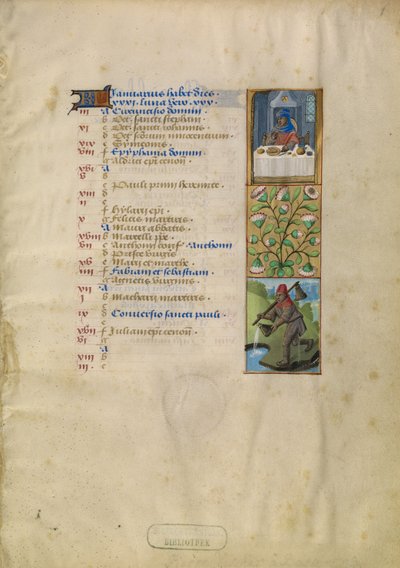 KL Januarius habet dies
xxxi. luna vero xxx.
iii A Circumcisio domini
b Oct' sancti stephani
xi c Oct' sancti iohannis
d Oct' sctorum innocentum
xix e Symeonis
viii f Epyphania domini
g epi
xvi A
b
c Pauli primi heremite
xiii d
ii e
f Hylarii epi
x g Felicis martiris
A Mauri abbatis
xviii b Marcelli ppe
vii c Anthonii conf' Anthonii
d Prisce virginis
xv e Marii et marthe
iiii f Fabiani et sebastiani
g Agnetis virginis
xii A
i b Macharii martiris
c
ix d Conversio sancti pauli
e
xvii f Juliani epi
vi g
A
b
iii c
BIBLIOTHEK